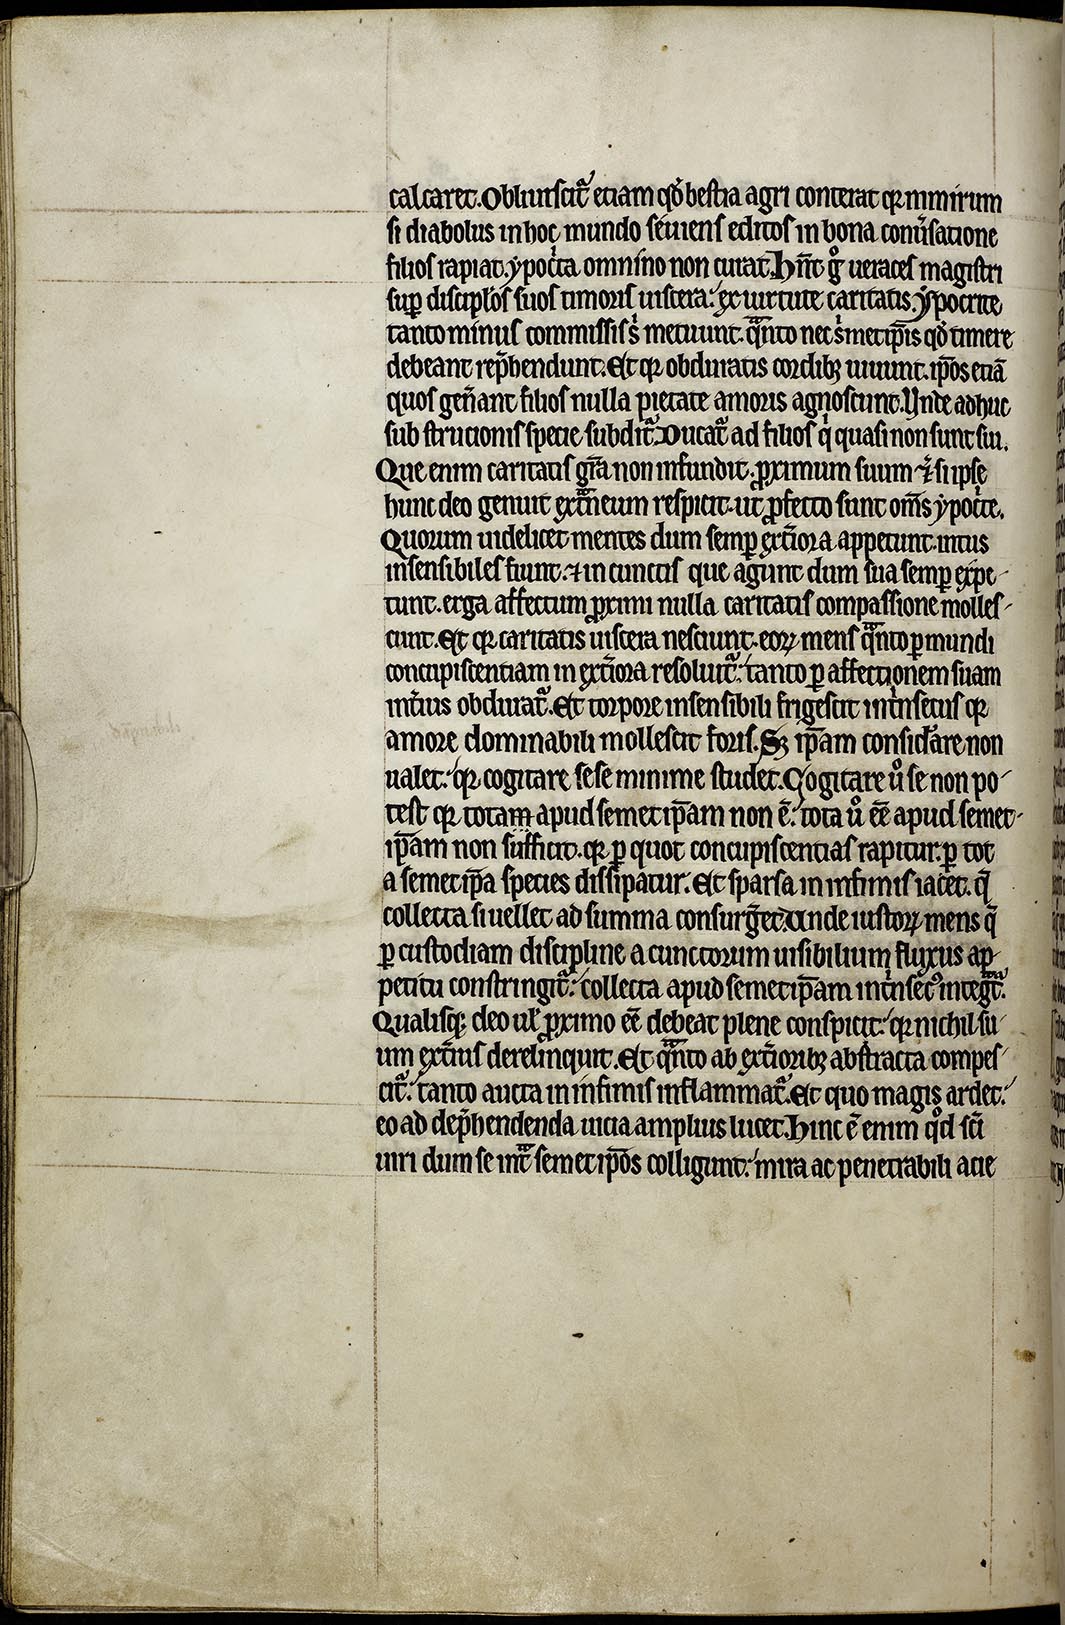 calcaret. Obliuiscit᷑ etiam qd̓ bestia agri conterat qꝛ nimirum
si diabolus in hoc mundo seuiens editos in bona conu̓satione
filios rapiat. ypoc̓ta omnino non curat. Hn̄t g̊ ueraces magistri
suꝑ discipl̓os suos timoris uiscera. ex uirtute caritatis. Ypocrite
tanto minus commissis s̓ metuunt. qᷓnto nec s̓metip̄is qd̓ timere
debeant rep̄hendunt. Et qꝛ obduratis cordibꝫ uiuunt. ip̄os etiā
quos gen̄ant filios nulla pietate amoris agnoscunt. Vnde adhuc
sub strucionis specie subdit᷑. Ducat᷑ ad filios qͥ quasi non sunt sui.
Que enim caritatis gr̄a non infundit. ꝓximum suum ⁊ si ipse
hunc deo genuit extᷓneum respicit. ut ꝓfecto sunt om̄s ypoc̓te.
Quorum uidelicet mentes dum semꝑ ext̓iora appetunt. intus
insensibiles fiunt. ⁊ in cunctis que agunt dum sua semꝑ expe-
tunt. erga affectum ꝓximi nulla caritatis compassione molles-
cunt. Et qꝛ caritatis uiscera nesciunt. eoꝝ mens qᷓnto ꝑ mundi
concupiscentiam in ext̓iora resoluit᷑. tanto ꝑ affectionem suam
int̓ius obdurat᷑. Et torpore insensibili frigescit int̓nsecus qꝛ
amore dominabili mollescit foris. Sꝫ ip̄am consid̓are non
ualet. qꝛ cogitare sese minime studet. Cogitare u̓o se non po-
test qꝛ totam apud semetip̄am non ē. tota u̓o eē apud semet-
ip̄am non sufficit. qꝛ ꝑ quot concupiscentias rapitur. ꝑ tot
a semetip̄a species dissipatur. Et sparsa in infimis iacet. q̄
collecta si uellet ad summa consurg̓et. Unde iustoꝝ mens q̄
ꝑ custodiam discipline a cunctorum uisibilium fluxus ap-
petitu constringit᷑. collecta apud semetip̄am int̓nsec᷒ integᷓt᷑.
Qualisqꝫ deo ul̓ ꝓximo eē debeat plene conspicit. qꝛ nichil su-
um ext̓ius derelinquit. Et qᷓnto ab ext̓ioribꝫ abstracta compes-
cit᷑. tanto aucta in infimis inflammat᷑. Et quo magis ardet.
eo ad dep̄hendenda uicia amplius lucet. Hinc ē enim qd̓ sc̄i
uiri dum se intᷓ semetip̄os colligunt. mira ac penetrabili acie